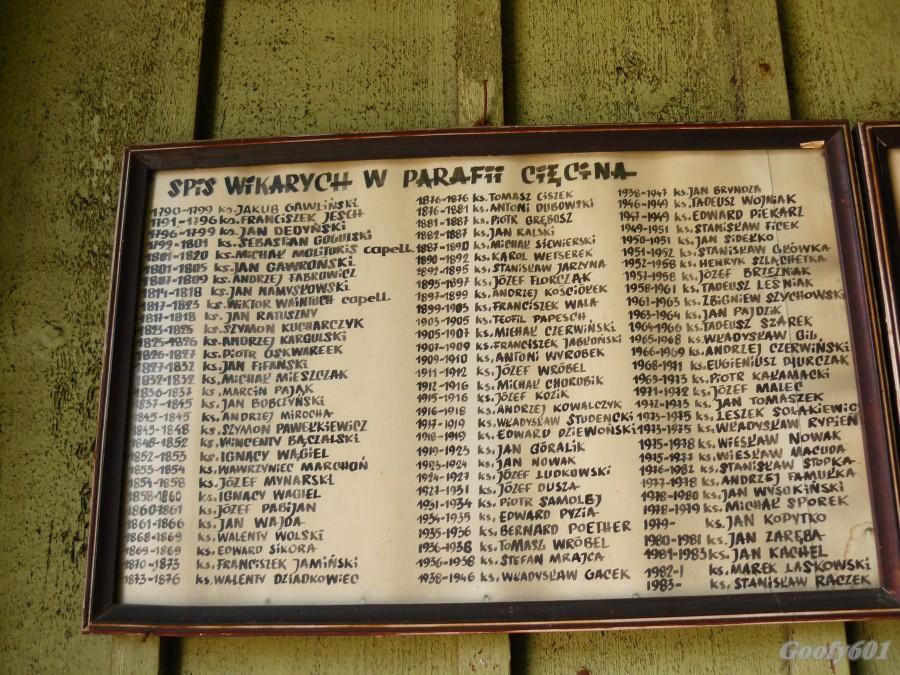 SPIS WIKARYCH W PARAFII CIĘCINA
1790-1799 ks. JAKUB GAWLIŃSKI
1791-1796 ks. FRANCISZEK JESCH
1796-1799 ks. JAN DEDYŃSKI
1799-1801 ks. SEBASTIAN GOGULSKI
1801-1820 ks. MICHAŁ MOLITORIS capell.
1801-1805 ks. JAN GAWROŃSKI
1807-1809 ks. ANDRZEJ FABROWICZ
1814-1818 ks. JAN NAMYSŁOWSKI
1817-1823 ks. WIKTOR WAINTUCH capell.
1817-1818 ks. JAN RATUSZNY
1823-1825 ks. SZYMON KUCHARCZYK
1825-1826 ks. ANDRZEJ KARGULSKI
1826-1827 ks. PIOTR OSKWAREEK
1827-1832 ks. JAN FIFAŃSKI
1832-1832 ks. MICHAŁ MIESZCZAK
1836-1837 ks. MARCIN PAJĄK
1837-1845 ks. JAN BOBCZYŃSKI
1845-1845 ks. ANDRZEJ MIROCHA
1845-1848 ks. SZYMON PAWEŁKIEWICZ
1848-1852 ks. WINCENTY BĄCZALSKI
1852-1853 ks. IGNACY WĄGIEL
1853-1854 ks. WAWRZYNIEC MARCHOŃ
1854-1858 ks. JÓZEF MYNARSKI
1858-1860 ks. IGNACY WAGIEL
1860-1861 ks. JÓZEF PABIJAN
1861-1866 ks. JAN WAJDA
1868-1869 ks. WALENTY WOLSKI
1869-1869 ks. EDWARD SIKORA
1870-1873 ks. FRANCISZEK JAMIŃSKI
1873-1876 ks. WALENTY DZIADKOWIEC
1876-1876 ks. TOMASZ CISZEK
1876-1881 ks. ANTONI DUBOWSKI
1881-1887 ks. PIOTR BRĘBOSZ
1882-1887 ks. JAN RALSKI
1887-1890 ks. MICHAŁ SIEWIERSKI
1890-1892 ks. KAROL WETSEREK
1892-1895 ks. STANISŁAW JARZYNA
1895-1897 ks. JÓZEF FLORCZAK
1897-1899 ks. ANDRZEJ KOSCIÓŁEK
1899-1903 ks. FRANCISZEK WALA
1903-1905 ks. TEOFIL PAPESCH
1905-1907 ks. MICHAŁ CZERWIŃSKI
1907-1909 ks. FRANCISZEK JABŁOŃSKI
1909-1910 ks. ANTONI WYROBEK
1911-1912 ks. JÓZEF WRÓBEL
1912-1916 ks. MICHAŁ CHOROBIK
1915-1916 ks. JÓZEF KOZIK
1916-1918 ks. ANDRZEJ KOWALCZYK
1917-1919 ks. WŁADYSŁAW STUDENCKI
1918-1919 ks. EDWARD DZIEWOŃSKI
1919-1923 ks. JAN GÓRALIK
1923-1924 ks. JAN NOWAK
1924-1927 ks. JÓZEF LUDKOWSKI
1927-1931 ks. JÓZEF DUSZA
1931-1934 ks. PIOTR SAMOLEJ
1934-1935 ks. EDWARD PYZIA
1935-1936 ks. BERNARD POETHER
1936-1938 ks. TOMASZ WRÓBEL
1936-1938 ks. STEFAN MRAJCA
1938-1946 ks. WŁADYSŁAW GACEK
1938-1947 ks. JAN BRYNDZA
1946-1949 ks. TADEUSZ WOJNIAK
1947-1949 ks. EDWARD PIEKARZ
1949-1951 ks. STANISŁAW FICEK
1950-1951 ks. JAN SIDEŁKO
1951-1952 ks. STANISŁAW GŁÓWKA
1952-1958 ks. HENRYK SZLACHETKA
1957-1958 ks. JÓZEF BRZEŹNIAK
1958-1961 ks. TADEUSZ LEŚNIAK
1961-1963 ks. ZBIGNIEW SZYCHOWSKI
1963-1964 ks. JAN PAJDZIK
1964-1966 ks. TADEUSZ SZAREK
1965-1968 ks. WŁADYSŁAW GIL
1966-1969 ks. ANDRZEJ CZERWIŃSKI
1968-1971 ks. EUGIENIUSZ DYURCZAK
1969-1973 ks. PIOTR KAŁAMACKI
1971-1972 ks. JÓZEF MALEC
1972-1973 ks. JAN TOMASZEK
1973-1975 ks. LESZEK SOLAKIEWIC
1973-1975 ks. WŁADYSŁAW RYPIEŃ
1975-1978 ks. WIESŁAW NOWAK
1975-1977 ks. WIESŁAW MACUDA
1976-1982 ks. STANISŁAW STOPKA
1977-1978 ks. ANDRZEJ FAMUŁKA
1978-1980 ks. JAN WYSOKIŃSKI
1978-1979 ks. MICHAŁ SPOREK
1979- ks. JAN KOPYTKO
1980-1981 ks. JAN ZARĘBA
1981-1983 ks. JAN KACHEL
1982-1 ks. MAREK LASKOWSKI
1983- ks. STANISŁAW RACZEK
Goofy601